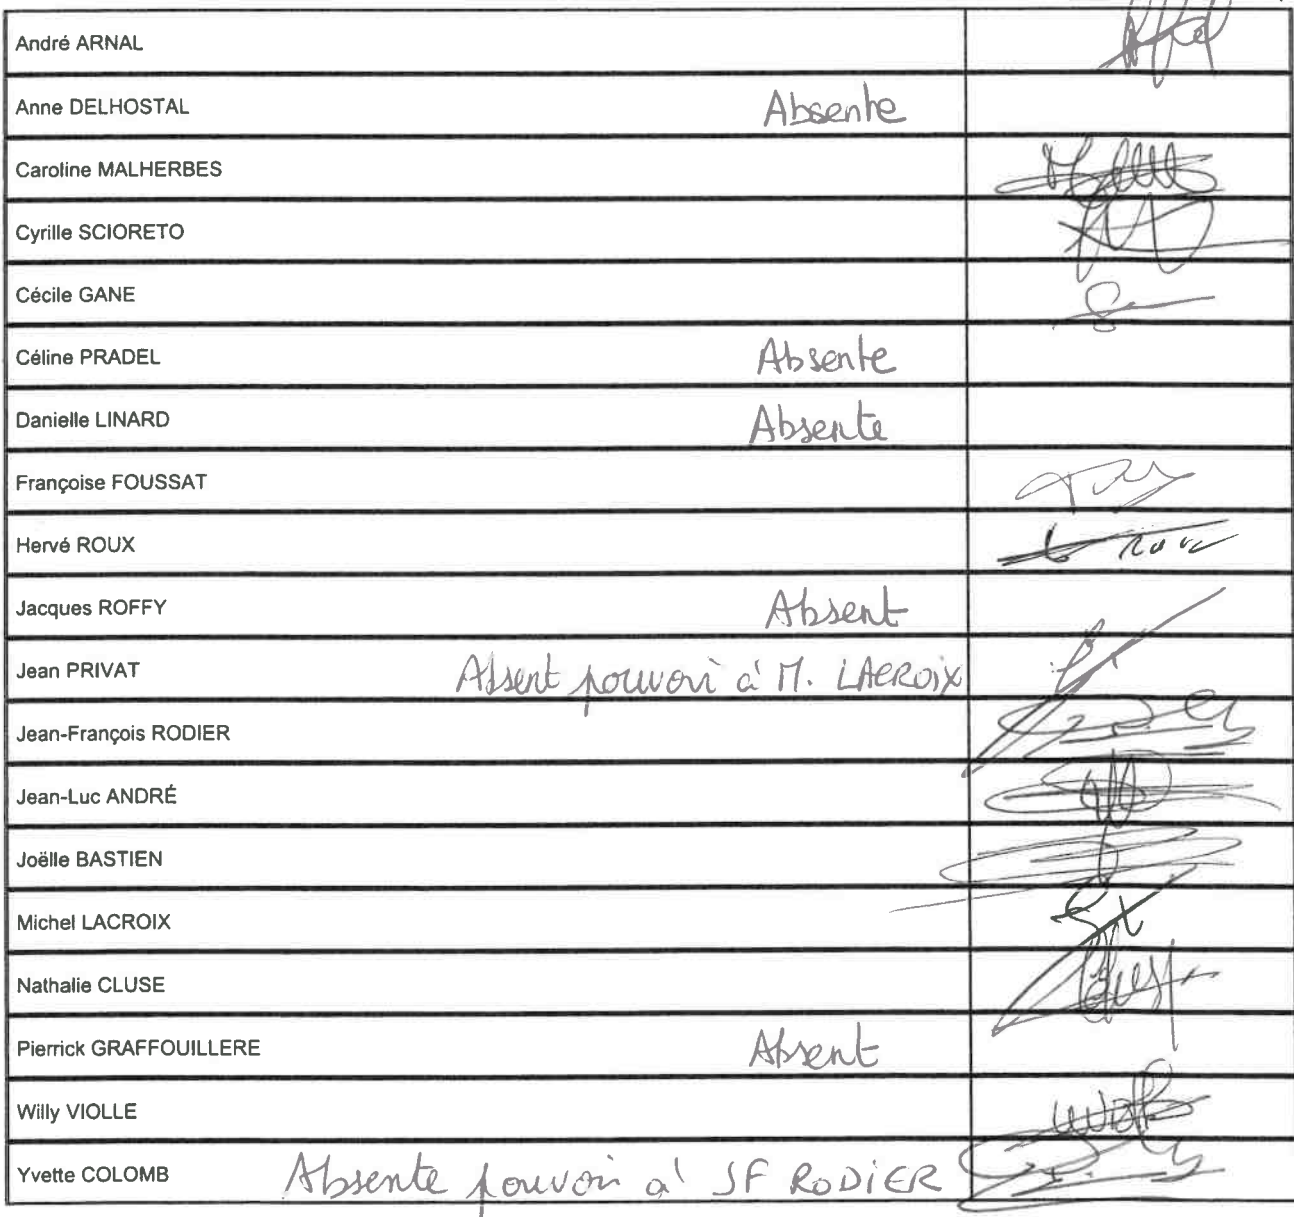 André ARNAL
Anne DELHOSTAL Absente
Caroline MALHERBES
Cyrille SCIORETO
Cécile GANE
Céline PRADEL Absente
Danielle LINARD Absente
Françoise FOUSSAT
Hervé ROUX
Jacques ROFFY Absent
Jean PRIVAT Absent pouvoir à M. LACROIX
Jean-François RODIER
Jean-Luc ANDRÉ
Joëlle BASTIEN
Michel LACROIX
Nathalie CLUSE
Pierrick GRAFFOUILLERE Absent
Willy VIOLLE
Yvette COLOMB Absente pouvoir à JF RODIER